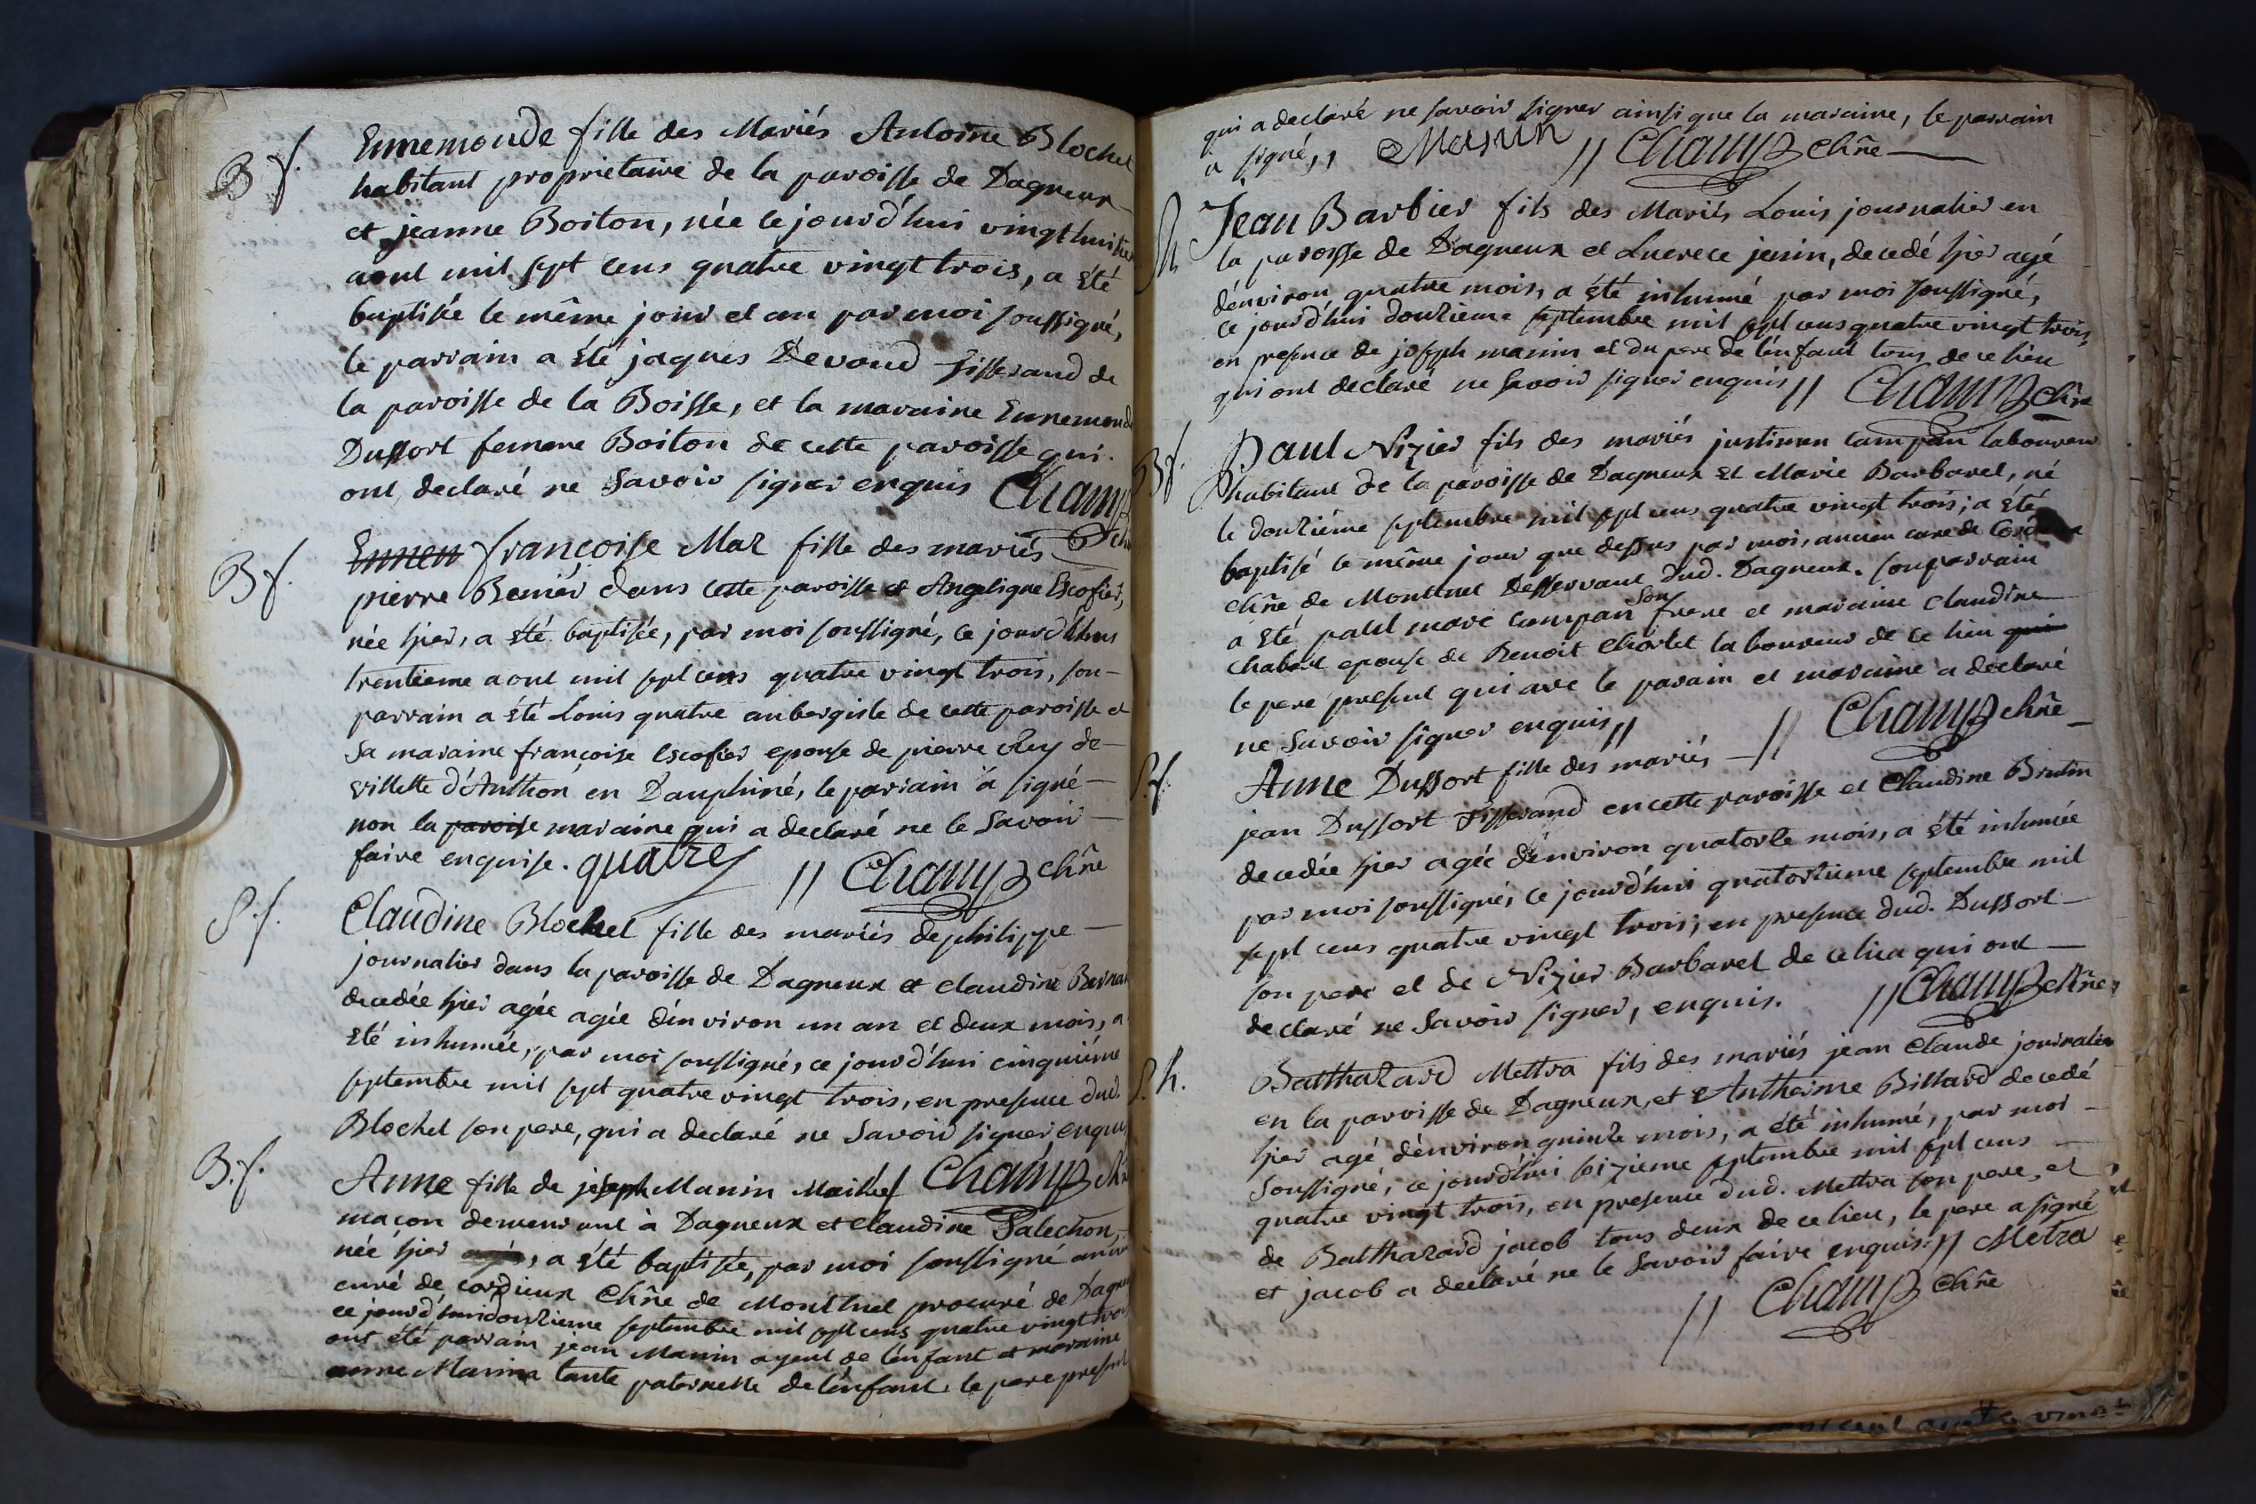 B f.
Ennemonde fille des Mariés Antoine Blochet
habitant proprietaire de la paroisse de Dagneux
et jeanne Boiton, née ce jourd'hui vingthuitieme
aout mil sept cens quatre vingt trois, a été
baptisée le même jour et an par moi soussigné,
le parrain a été jaques Devoud tisserand de
la paroisse de la Boisse, et la maraine Ennemonde
Dussort femme Boiton de cette paroisse qui
ont declaré ne Savoir signer enquis Champ
B f.
Ennem françoise Maz fille des mariés
pierre Benier dans cette paroisse et Angelique Escofier,
née hier, a été baptisée, par moi soussigné, ce jourd'huy
trentieme aout mil sept cens quatre vingt trois, son
parrain a été Louis quatre aubergiste de cette paroisse et
Sa maraine françoise Escofier epouse de pierre Rey de
villette d'Anthon en Dauphiné, le parrain a signé
non la paroisse maraine qui a declaré ne le Savoir
faire enquise. quatre // Champ chñe
S. f.
Claudine Blochet fille des mariés de philippe
journalier dans la paroisse de Dagneux et claudine
decedée hier agée agée d'environ un an et deux mois, a
été inhumée, par moi soussigné, ce jourd'hui cinquiéme
septembre mil sept quatre vingt trois, en presence dud.
Blochet son pere, qui a declaré ne Savoir signer enquis
B. f.
Anne fille de joseph Manin Maitre Champ
maçon demeurant à Dagneux et claudine Palechon,
née hier, a été baptisée, par moi soussigné ancien
curé de cordieux Chñe de Montluel procuré de Dagneux
ce jourd'hui douzieme septembre mil sept cens quatre vingt trois
ont été parrain jean Manin ayeul de l'enfant et maraine
anne Manin tante paternelle de l'enfant le pere present
qui a declaré ne savoir signer ainsi que la maraine, le parrain
a signé,, Manin // Champ chñe
Sh
Jean Barbier fils des Mariés Louis journalier en
la paroisse de Dagneux et Lucrece jenin, decedé hier agé
d'environ quatre mois, a été inhumé par moi soussigné,
ce jourd'hui douzieme septembre mil sept cens quatre vingt trois,
en presence de joseph manin et du pere de l'enfant tous de ce lieu
qui ont declaré ne Savoir signer enquis // Champ chñe
B f.
Paul Nizier fils des mariés justinien campan laboureur
habitant de la paroisse de Dagneux et Marie Barbaret, né
le douziéme septembre mil sept cens quatre vingt trois; a été
baptisé le même jour que dessus par moi, ancien curé de Cordieux
chñe de Montluel Desservant dud. Dagneux. son parrain
a été paul marc campan son frere et maraine claudine
Chabert epouse de Benoit Chortet laboureur de ce lieu qui
le pere present qui avec le parain et maraine a declaré
ne Savoir signer enquis // // Champ chñe
S. f.
Anne Dussort fille des mariés
jean Dussort tisserand en cette paroisse et Claudine Brutin
decedée hier agée d'environ quatorze mois, a été inhumée
par moi soussigné, ce jourd'hui quatorzieme septembre mil
sept cens quatre vingt trois; en presence dud. Dussort
son pere et de Nizier Barbaret de ce lieu qui ont
declaré ne Savoir signer, enquis. // Champ chñe
S. h.
Balthazard Mettra fils des mariés jean Claude journalier
en la paroisse de Dagneux, et Anthelme Billard decedé
hier agé d'environ quinze mois, a été inhumé, par moi
Soussigné, ce jourd'hui seizieme septembre mil sept cens
quatre vingt trois, en presence dud. Mettra son pere, et
de Balthazard jacob tous deux de ce lieu, le pere a signé
et jacob a declaré ne le Savoir faire enquis. // Metra
// Champ chñe